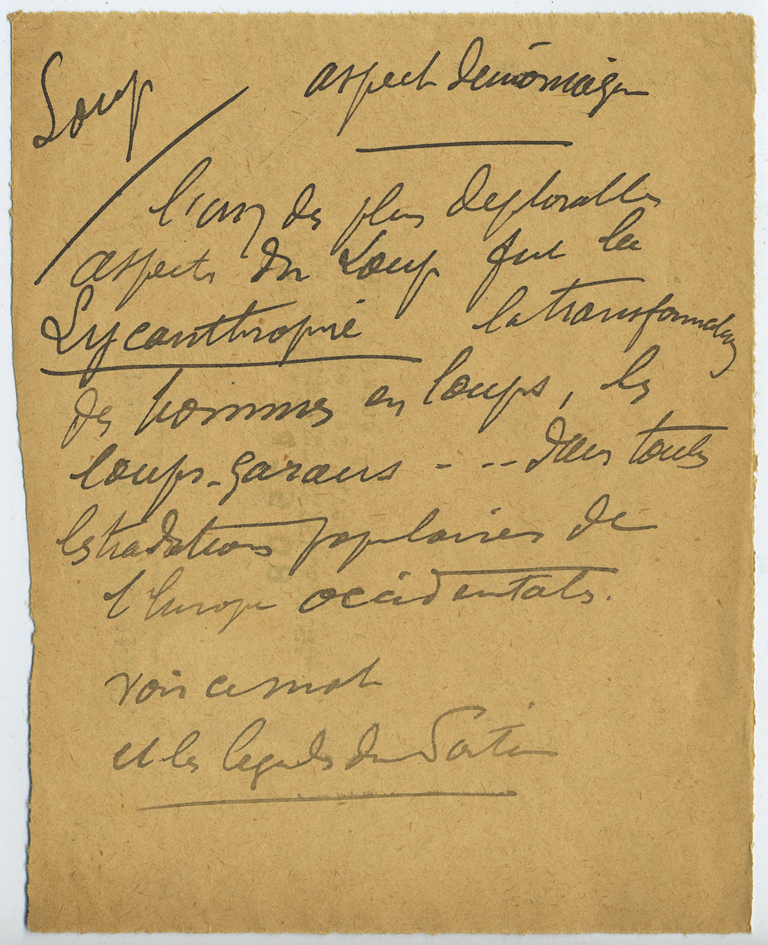 Loup aspect démoniaque
l'un des plus deplorables
aspects du Loup fut la
Lycanthropie la transformation
des hommes en loups, les
loups-garous - - - dans toutes
les traditions populaires de
l'Europe occidentale.
voir ce mot
et les legendes du Poitou